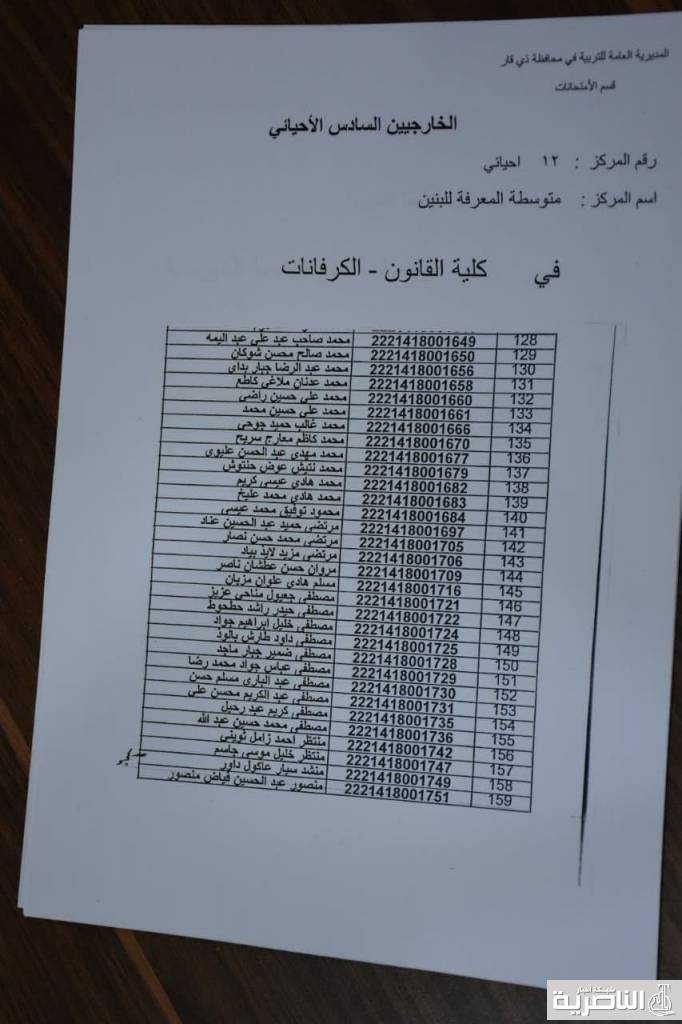 المديرية العامة للتربية في محافظة ذي قار
قسم الأمتحانات
الخارجيين السادس الأحيائي
رقم المركز : ١٢ احيائي
اسم المركز : متوسطة المعرفة للبنين
في كلية القانون - الكرفانات
128 2221418001649 محمد صاحب عبد علي عبد اليمه
129 2221418001650 محمد صالح محسن شوكان
130 2221418001656 محمد عبد الرضا جبار بداي
131 2221418001658 محمد عدنان ملاغي كاطع
132 2221418001660 محمد علي حسين راضي
133 2221418001661 محمد علي حسين محمد
134 2221418001666 محمد غالب حميد جوحي
135 2221418001670 محمد كاظم معارج سريح
136 2221418001677 محمد مهدي عبد الحسن عليوي
137 2221418001679 محمد نتيش عوض حنتوش
138 2221418001682 محمد هادي عيسى كريم
139 2221418001683 محمد هادي محمد عليخ
140 2221418001684 محمود توفيق محمد عيسى
141 2221418001697 مرتضى حميد عبد الحسين عناد
142 2221418001705 مرتضى محمد حسن نصار
143 2221418001706 مرتضى مزيد لايذ بياد
144 2221418001709 مروان حسن عطشان ناصر
145 2221418001716 مسلم هادي علوان مزيان
146 2221418001721 مصطفى جعيول مناحي عزيز
147 2221418001722 مصطفى حيدر راشد حطحوط
148 2221418001724 مصطفى خليل ابراهيم جواد
149 2221418001725 مصطفى داود طارش بالوذ
150 2221418001728 مصطفى ضمير جبار ماجد
151 2221418001729 مصطفى عباس جواد محمد رضا
152 2221418001730 مصطفى عبد الباري مسلم حسن
153 2221418001731 مصطفى عبد الكريم محسن علي
154 2221418001735 مصطفى كريم عبد رحيل
155 2221418001736 مصطفى محمد حسين عبد الله
156 2221418001742 منتظر احمد زامل ثويني
157 2221418001747 منتظر خليل موسى جاسم
158 2221418001749 منشد سيار عاكول داور
159 2221418001751 منصور عبد الحسين فياض منصور
شبكة أخبار
الناصرية